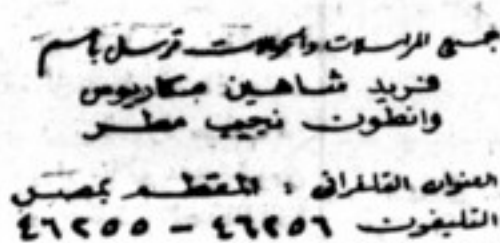 جميع المراسلات والحوالات ترسل باسم
فريد شاهين مكاريوس
وانطون نجيب مطر
العنوان التلغرافى : المقتطم بمصر
التليفون ٤٦٢٥٦ - ٤٦٢٥٥